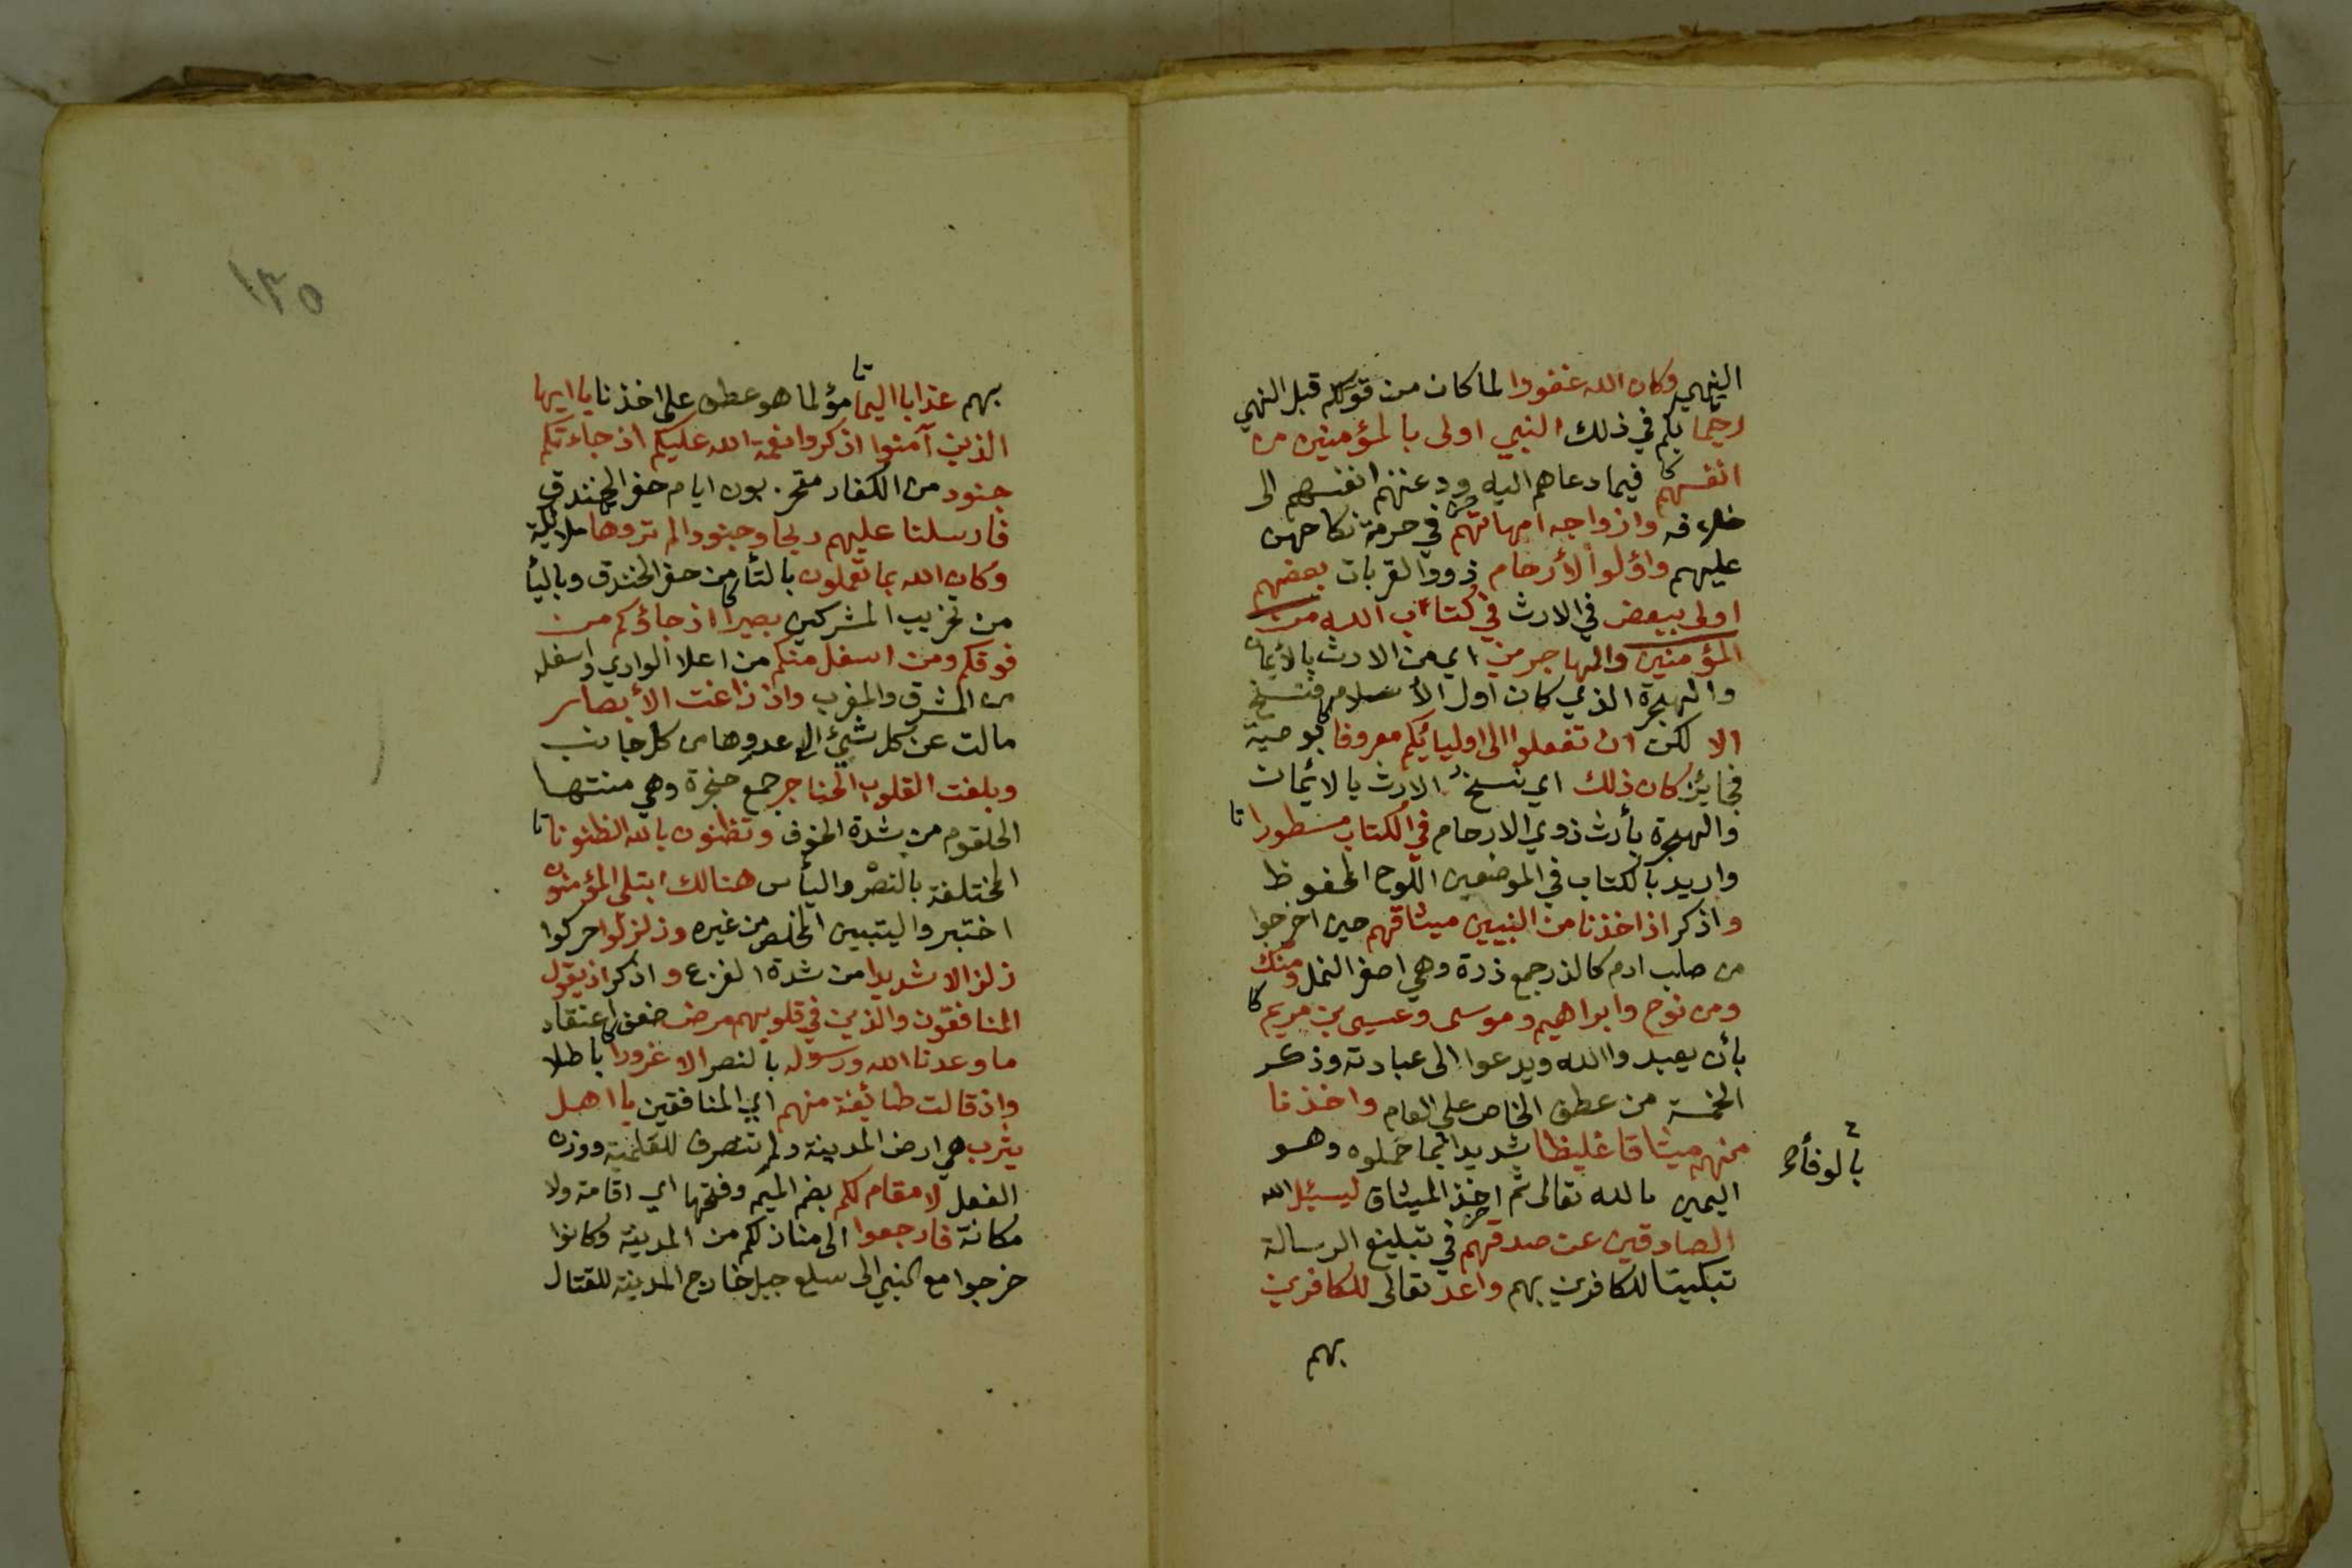 النهي وكان الله غفورا لما كان من قولكم قبل النهي
رحيما بكم في ذلك النبي اولى بالمؤمنين من
انفسهم فيما دعاهم اليه ودعتهم انفسهم الى
خلافه وازواجه امهاتهم في حرمة نكاحهن
عليهم واؤلوا الأرحام ذووا القربات بعضهم
اولى ببعض في الارث في كتاب الله من
المؤمنين والمهاجرين اي من الارث بالأيمان
والهجرة الذي كان اول الأسلام فنسخ
الا لكن ان تفعلوا الى اوليائكم معروفا بوصية
فجائز كان ذلك اي نسخ الارث بالائمان
والهجرة بأرث ذوي الارحام في الكتاب مسطورا
واريد بالكتاب في الموضعين اللوح المحفوظ
واذكر اذ اخذنا من النبيين ميثاقهم حين اخرجوا
من صلب ادم كالذر جمع ذرة وهي اصغر النمل ومنك
ومن نوح وابراهيم وموسى وعيسى بن مريم
بأن يعبدوا الله ويدعوا الى عبادته وذكر
الخمسة من عطف الخاص على العام واخذنا
منهم ميثاقا غليظا شديدا بما حملوه وهو
بالوفأ
اليمين بالله تعالى ثم اخذ الميثاق ليسئل الله
الصادقين عن صدقهم في تبليغ الرسالة
تبكيتا للكافرين بهم واعد تعالى للكافرين
بهم
١٣٥
بهم عذابا اليما مؤلما هو عطف على اخذنا يا ايها
الذين آمنوا اذكروا نعمة الله عليكم اذ جاءتكم
جنود من الكفار متحزبون ايام حفر الخندق
فارسلنا عليهم ريحا وجنودا لم تروها ملائكة
وكان الله بما تعملون بالتأ من حفر الخندق وباليأ
من تحزيب المشركين بصيرا اذ جاؤكم من
فوقكم ومن اسفل منكم من اعلا الوادي واسفله
من المشرق والمغرب واذ زاغت الأبصار
مالت عن كل شيئ الى عدوها من كل جانب
وبلغت القلوب الحناجر جمع حنجرة وهي منتها
الحلقوم من شدة الخوف وتظنون بالله الظنونا
المختلفة بالنصر واليأس هنالك ابتلى المؤمنون
اختبروا ليتبين المخلص من غيره وزلزلوا حركوا
زلزالا شديدا من شدة الفزع واذكر اذ يقول
المنافقون والذين في قلوبهم مرض ضعف اعتقاد
ما وعدنا الله ورسوله بالنصر الا غرورا باطلا
واذ قالت طائفة منهم اي المنافقين يا اهل
يثرب هي ارض المدينة ولم تنصرف للعلمية ووزن
الفعل لا مقام لكم بضم الميم وفتحها اي اقامة ولا
مكانة فارجعوا الى منازلكم من المدينة وكانوا
خرجوا مع النبي الى سلع جبل خارج المدينة للقتال